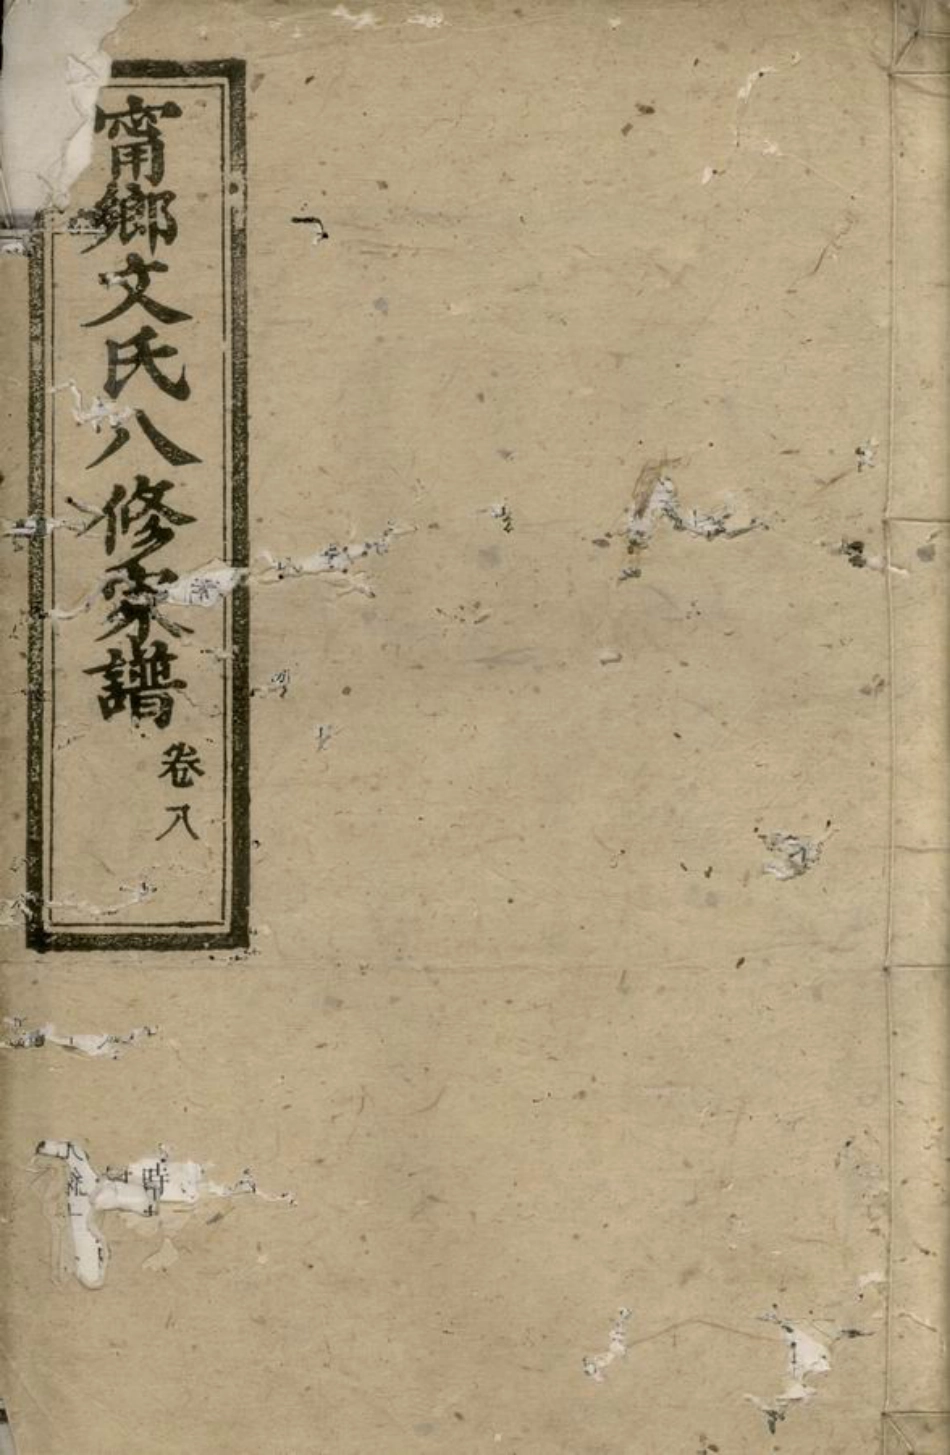 甯鄉文氏八修家譜
卷八
時